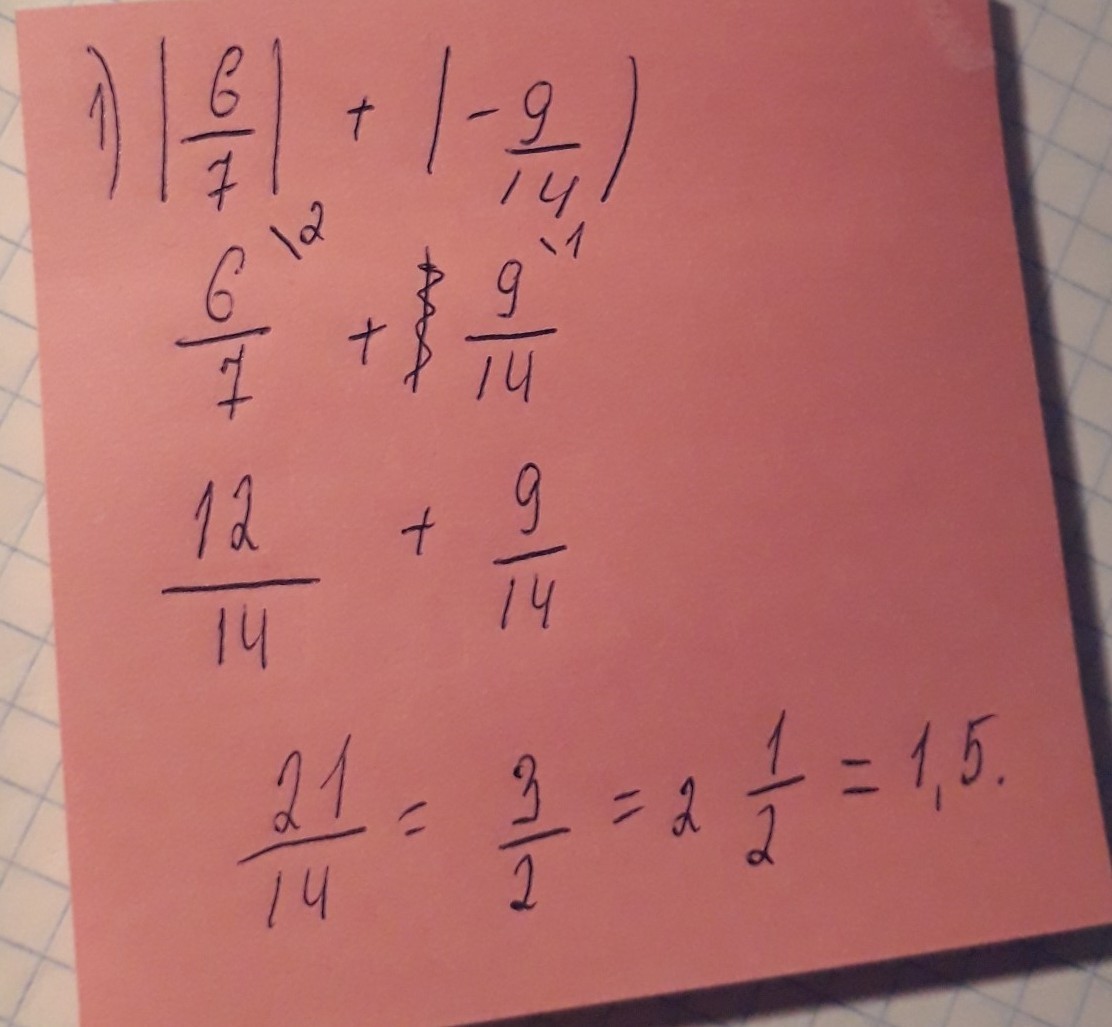 1) |6/7| + |-9/14|
6/7 \2 + 9/14 \1
12/14 + 9/14
21/14 = 3/2 = 2 1/2 = 1,5.